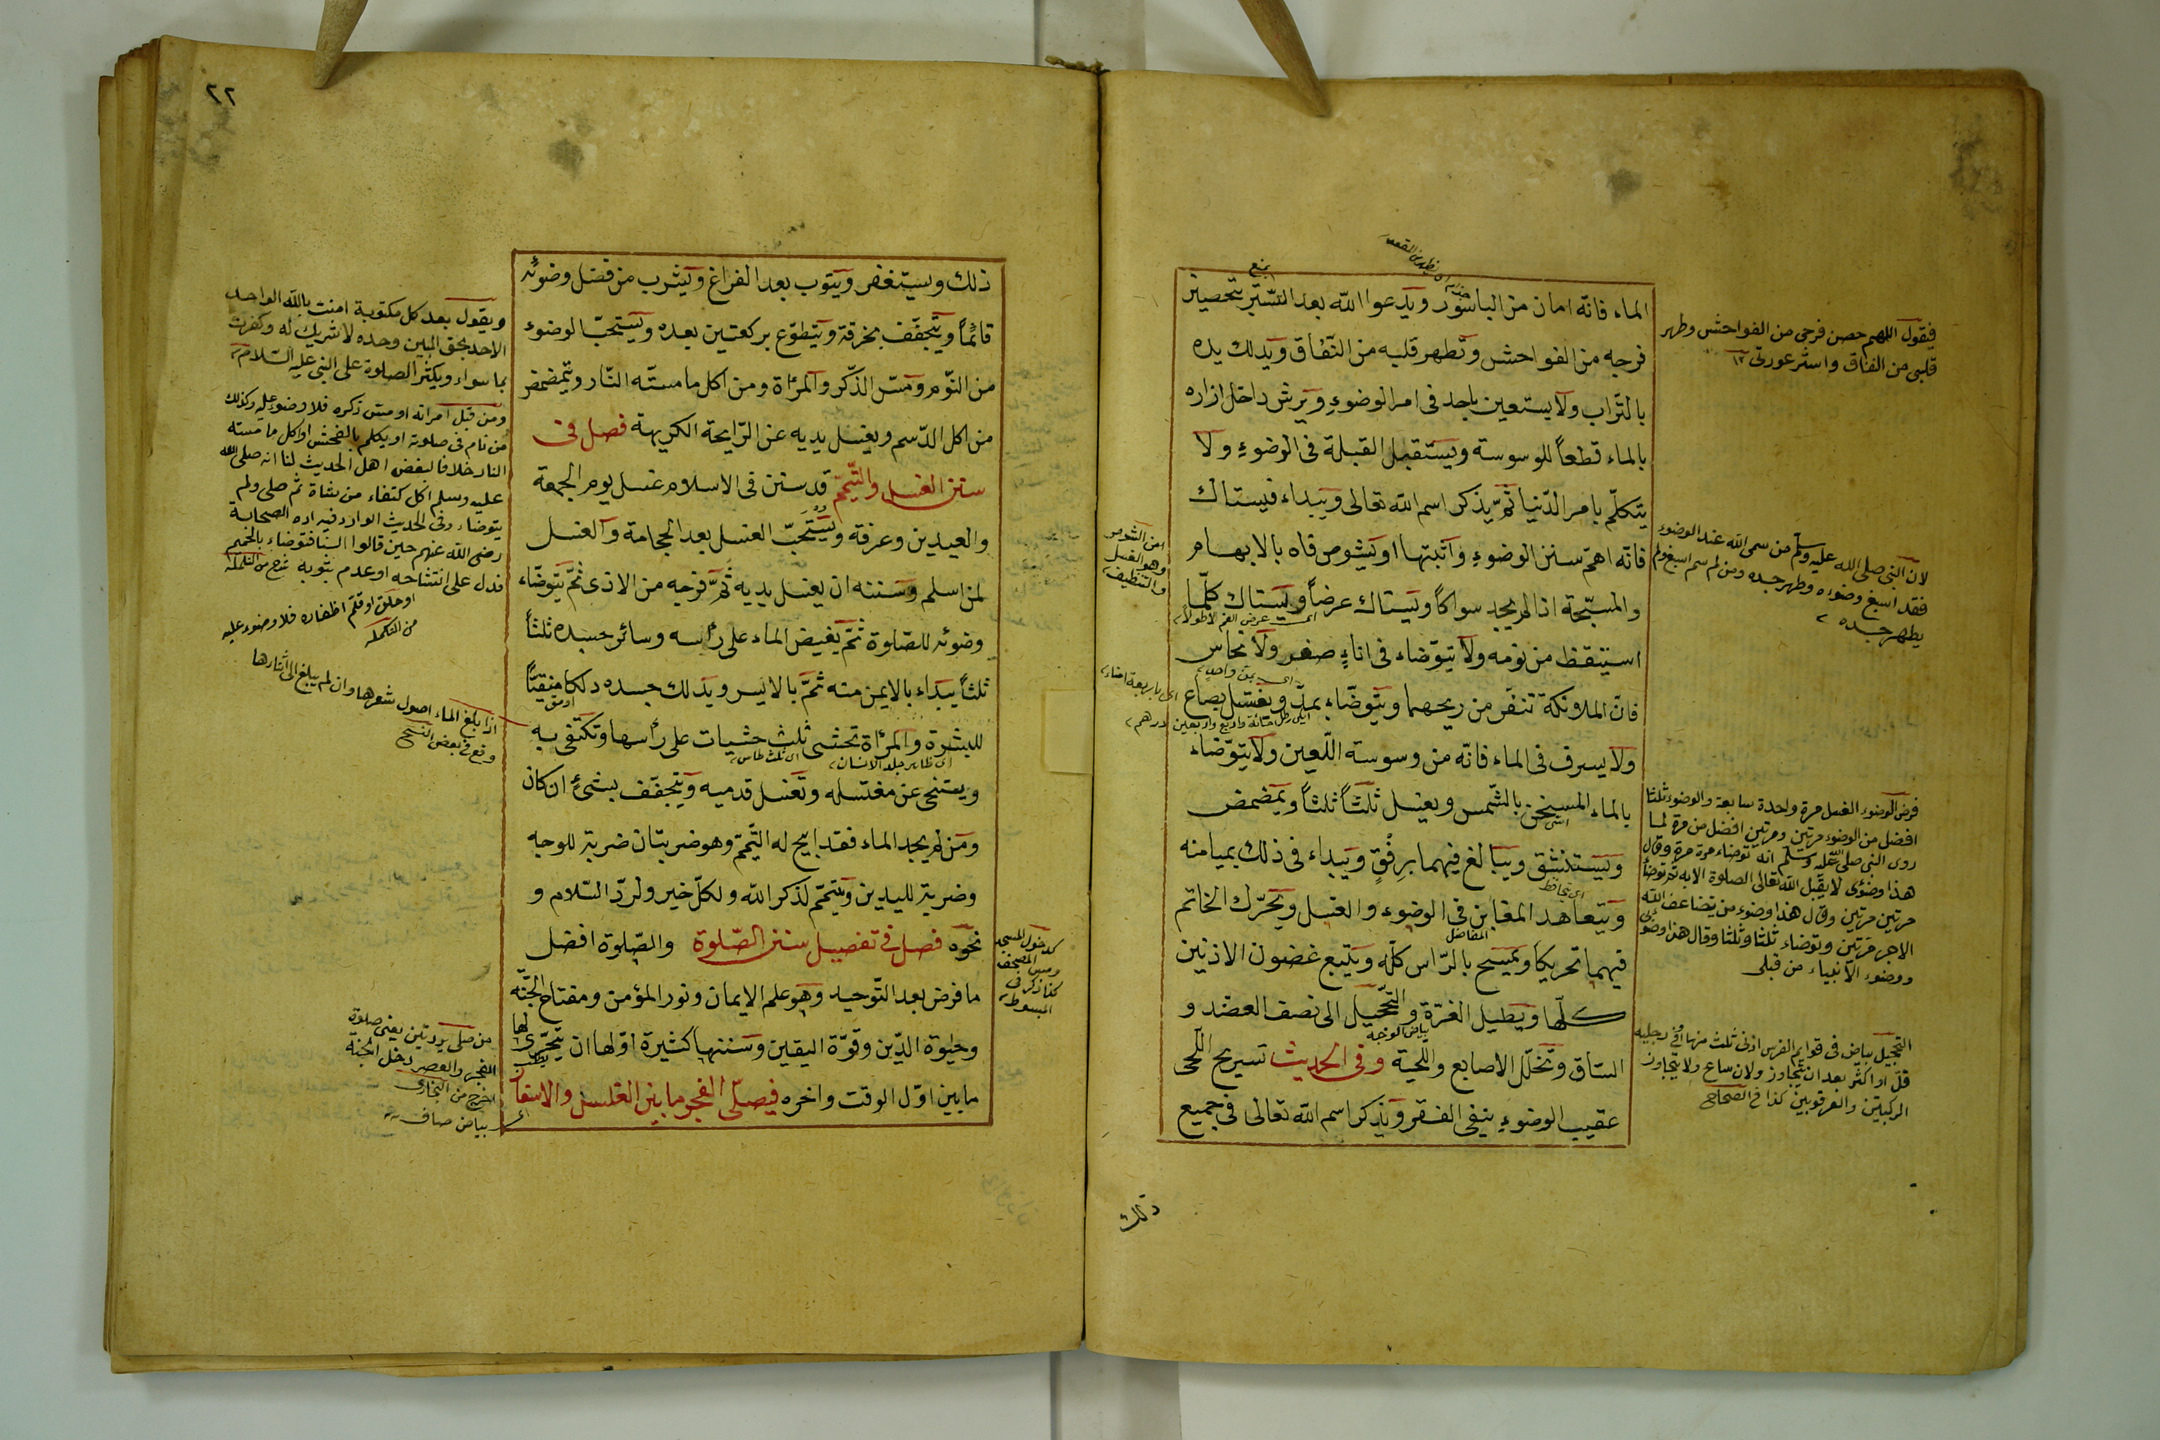 الماء فانّه امان من الباسور ويدعوا الله بعد التستّر بتحصين
فرجه من الفواحش وتطهر قلبه من النّفاق ويدلك يده
بالتّراب ولا يستعين باحد فى امر الوضوءِ ويرش داخل ازاره
بالماء قطعاً للوسوسة ويستقبل القبلة فى الوضوءِ ولا
يتكلّم بامر الدّنيا ثمّ يذكر اسم الله تعالى ويبداء فيستاك
فانّه اهمّ سنن الوضوءِ وآثبتها او يشوص فاه بالابهام
والمسبّحة اذا لم يجد سواكاً ويستاك عرضاً ويستاك كلّما
استيقظ من نومه ولا يتوّضاء فى اناءٍ صفر ولا نحاس
فانّ الملائكة تنفّر من ريحهما ويتوضّاء بمدّ ويغتسل بصاع
ولا يسرف فى الماء فانّه من وسوسة اللّعين ولا يتوّضاء
بالماء المسخن بالشّمس ويغسل ثلثاً ثلثاً ويمضمض
ويستنشق ويبالغ فيهما برفقٍ ويبداء فى ذلك بميامنه
ويتعاهد المغابن فى الوضوء والغسل ويحرّك الخاتم
فيهما تحريكاً ويمسح بالرّاس كلّه ويتبع غضون الاذنين
كلّها ويطيل الغرّة والتّحجيل الى نصف العضد و
السّاق وتخلّل الاصابع واللّحية وفى الحديث تسريح اللّحى
عقيب الوضوءِ ينفى الفقر ويذكر اسم الله تعالى فى جميع
ذلك
فيقول اللهم حصن فرجى من الفواحش وطهر
قلبى من النفاق واستر عورتى ١٢
لانّ النبى صلى الله عليه وسلم من سمى الله عند الوضوء
فقد اسبغ وضوءه وطهر جسده ومن لم يسم اسبغ ولم
يطهر جسده
من الشوص
وهو الغسل
والتنظيف
فرض الوضوء الغسل مرة واحدة سابغة والوضوء ثلثا
افضل من الوضوء مرتين ومرتين افضل من مرة لما
روى النبى صلى الله عليه وسلم انه توضاء مرة مرة وقال
هذا وضوئى لا يقبل الله تعالى الصلوة الا به ثم توضأ
مرتين مرتين وقال هذا وضوء من يضاعف الله
الاجر مرتين وتوضاء ثلثا وثلثا وقال هذا وضوئى
ووضوء الانبياء من قبلى
التحجيل بياض فى قوائم الفرس او فى ثلث منها او فى رجليه
قلّ او اكثر بعد ان يتجاوز ولا يتجاوز
الركبتين والعرقوبين كذا فى الصحاح
٢٢
ذلك ويستغفر ويتوب بعد الفراغ ويشرب من فضل وضوئه
قائماً ويتجفّف بخرقة ويتطوّع بركعتين بعده ويستحبّ الوضوء
من النّوم ومسّ الذّكر والمرأة ومن اكل ما مسّته النّار ويتمضمض
من اكل الدّسم ويغسل يديه عن الرّايحة الكريهة فصل فى
سنن الغسل والتّيمّم قد سنن فى الاسلام غسل يوم الجمعة
والعيدين وعرفة ويستحبّ الغسل بعد الحجامة والغسل
لمن اسلم وسننه ان يغسل يديه ثمّ فرجه من الاذى ثمّ يتوضّاء
وضوئه للصّلوة ثمّ يفيض الماء على رأسه وسائر جسده ثلثاً
ثلثاً يبداء بالايمن منه ثمّ بالايسر ويدلك جسده دلكا منقيّاً
للبشرة والمرأة تحثى ثلث حثيات على رأسها وتكتفى به
ويتنحى عن مغتسله وتغسل قدميه ويتجفّف بشىءٍ ان كان
ومن لم يجد الماء فقد ابيح له التّيمّم وهو ضربتان ضربة للوجه
وضربة لليدين ويتيمّم لذكر الله ولكلّ خير ولردّ السّلام و
نحوه فصل فى تفصيل سنن الصّلوة والصّلوة افضل
ما فرض بعد التّوحيد وهو علم الايمان ونور المؤمن ومفتاح الجنّه
وحيوة الدّين وقوّة اليقين وسننها كثيرة اوّلها ان يتحرّى لها
ما بين اوّل الوقت واخره فيصلّى الفجر ما بين الغلس والاسفار
ويقول بعد كل مكتوبة امنت بالله الواحد
الاحد بحق المبين وحده لا شريك له وكفرت
بما سواه ويكثر الصلوة على النبى عليه السّلام
ومن قبل امرأته او مس ذكره فلا وضوء عليه وكذلك
من نام فى صلوته او يكلم بالفحش او اكل ما مسته
النار خلافا لبعض اهل الحديث لنا انه صلى الله
عليه وسلم اكل كتفاء من شاة ثم صلى ولم
يتوضاء وفى الحديث الوارد فيه
رضى الله عنهم حين قالوا
او حلق او قلم اظفاره فلا وضوء عليه
من التكملة
اذا بلغ الماء اصول شعرها وان لم يبلغ الى آثارها
وقع فى بعض النسخ
اى ظاهر جلد الانسان
كدخول المسجد
ومس المصحف
كذا ذكر فى
المبسوط
من صلى بردتين يعنى صلوة
الفجر والعصر دخل الجنة
اخرج من البخارى
بياض صاف